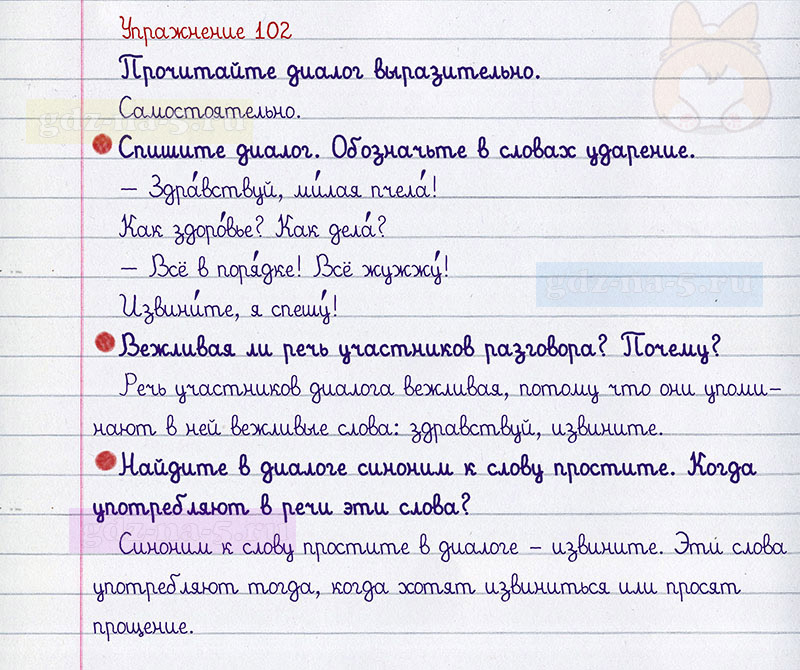 Упражнение 102
Прочитайте диалог выразительно.
Самостоятельно.
gdz-na-5.ru
Спишите диалог. Обозначьте в словах ударение.
– Здра́вствуй, ми́лая пчела́!
Как здоро́вье? Как дела́?
– Всё в поря́дке! Всё жужжу́!
gdz-na-5.ru
Извини́те, я спешу́!
Вежливая ли речь участников разговора? Почему?
Речь участников диалога вежливая, потому что они упоми–
нают в ней вежливые слова: здравствуй, извините.
Найдите в диалоге синоним к слову простите. Когда
употребляют в речи эти слова?
gdz-na-5.ru
Синоним к слову простите в диалоге – извините. Эти слова
употребляют тогда, когда хотят извиниться или просят
прощение.